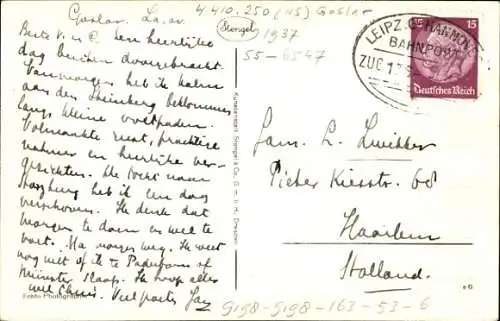 Goslar.
4.410.250 (NS) Goslar
1937
55-6547
Stengel
LEIPZ.
BAHNPOST
ZUG
15 15
Deutsches Reich
Beste V. en C. Een heerlijke
dag hier doorgebracht.
Vanmorgen heb ik kalm
aan den Steinberg beklommen
langs kleine voetpaden.
Volmaakte rust, prachtige
en heerlijke ver-
gezichten. De tocht naar
Harzburg heb ik een dag
verschoven. Ik denk dat
morgen te doen en wel te
voet. Na morgen weg. Ik weet
nog niet of ik te Paderborn of
Münster slaap. Ik hoop alles
wel thuis. Veel
Fam. L. Zwikker
Pieter Kiesstr. 68
Haarlem
Holland.
Kunstanstalt Stengel & Co., G. m. b. H., Dresden
Echte Photographie
9198-9198-163-53-6